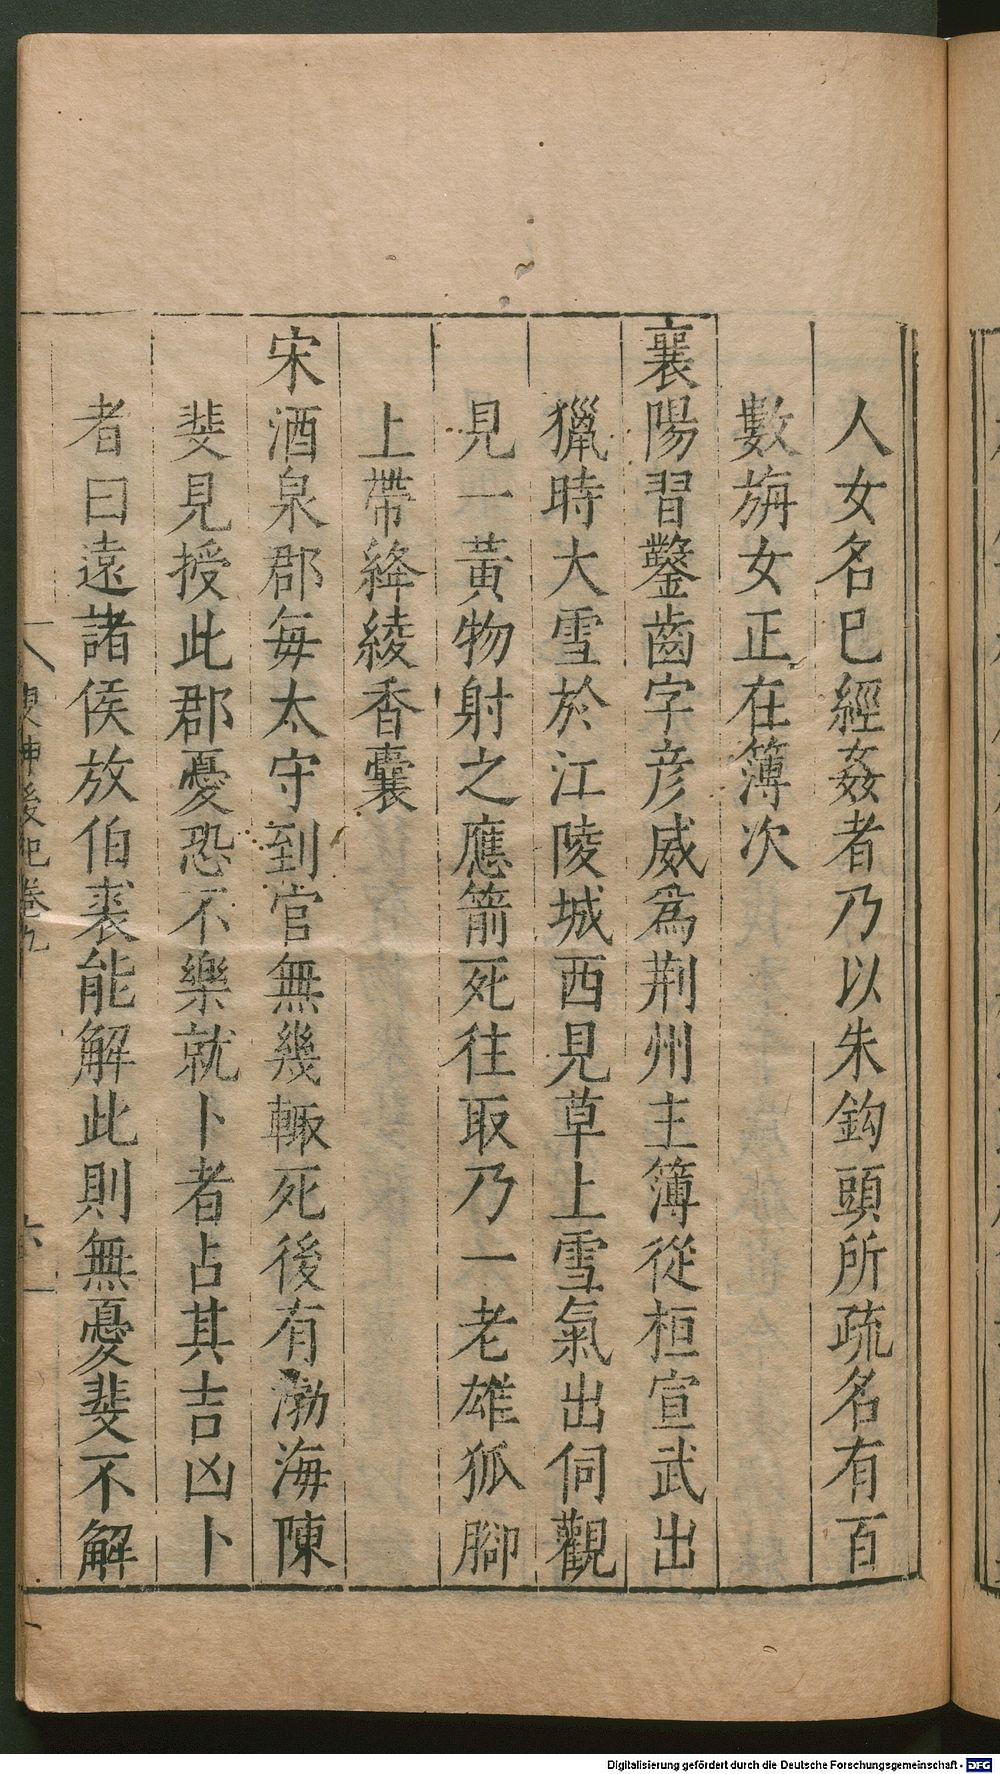 人女名巳經姦者乃以朱鈎頭所疏名有百
數旃女正在簿次
襄陽習鑿齒字彦威爲荆州主簿從桓宣武出
獵時大雪於江陵城西見草上雪氣出伺觀
見一黃物射之應箭死往取乃一老雄狐腳
上帶絳綾香囊
宋酒泉郡每太守到官無幾輙死後有渤海陳
斐見授此郡憂恐不樂就卜者占其吉凶卜
者曰遠諸侯放伯裘能解此則無憂斐不解
搜神後記卷九
六
Digitalisierung gefördert durch die Deutsche Forschungsgemeinschaft - DFG